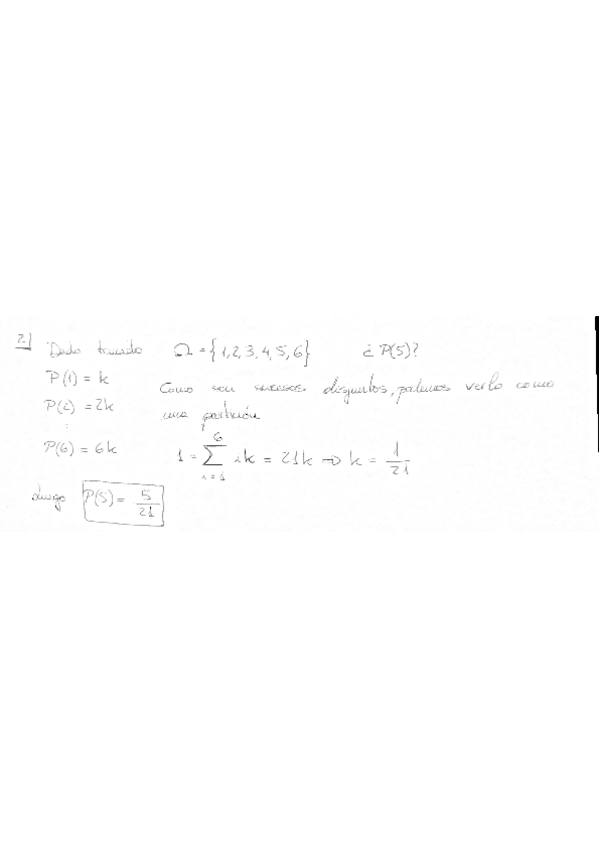 2.] Dado trucado Ω = {1,2,3,4,5,6} ¿P(5)?
P(1) = k Como son sucesos disjuntos, podemos verlo como
P(2) = 2k una partición
⋮
P(6) = 6k 1 = ∑_{i=1}^{6} ik = 21k ⇒ k = 1/21
Luego P(5) = 5/21